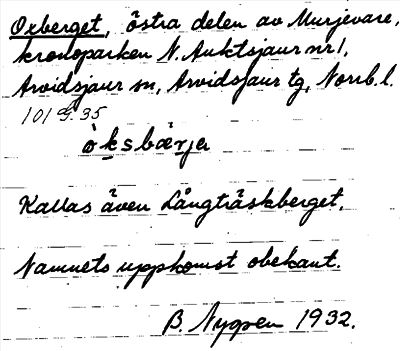 Oxberget, östra delen av Murjevare,
kronoparken N. Auktsjaur nr 1,
Arvidsjaur sn, Arvidsjaur tg, Norrb. l.
101 G. 35
òksbærja
Kallas även Långträskberget.
Namnets uppkomst obekant.
B. Nygren 1932.